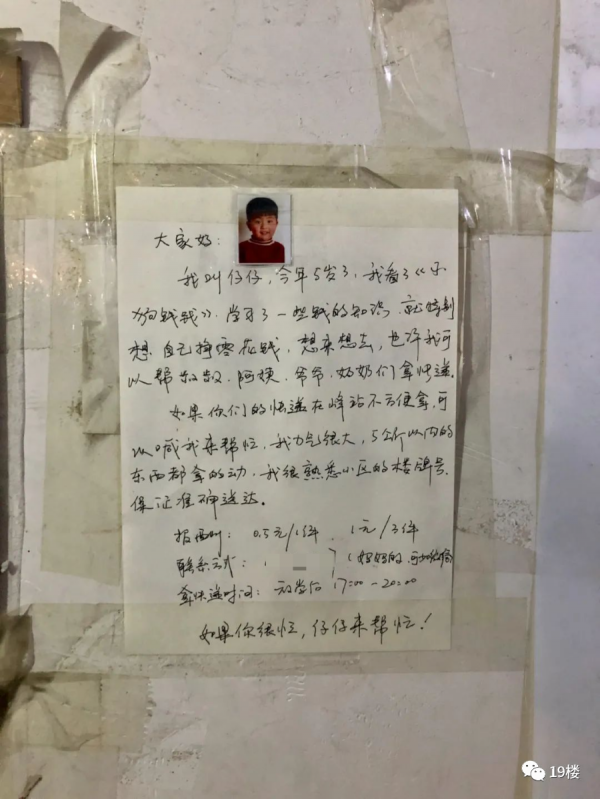 大家好：
我叫仔仔，今年5岁了，我看了《小
狗钱钱》，学习了一些钱的知识，就特别
想自己挣零花钱，想来想去，也许我可
以帮叔叔、阿姨、爷爷、奶奶们拿快递。
如果你们的快递在峰站不方便拿，可
以喊我来帮忙，我力气很大，5公斤以内的
东西都拿的动，我很熟悉小区的楼牌号，
保证准确送达。
报酬： 0.5元/1件、1元/3件
联系方式： (妈妈的，可加微信)
拿快递时间：放学后 17:00-20:00
如果你很忙，仔仔来帮忙！
19楼